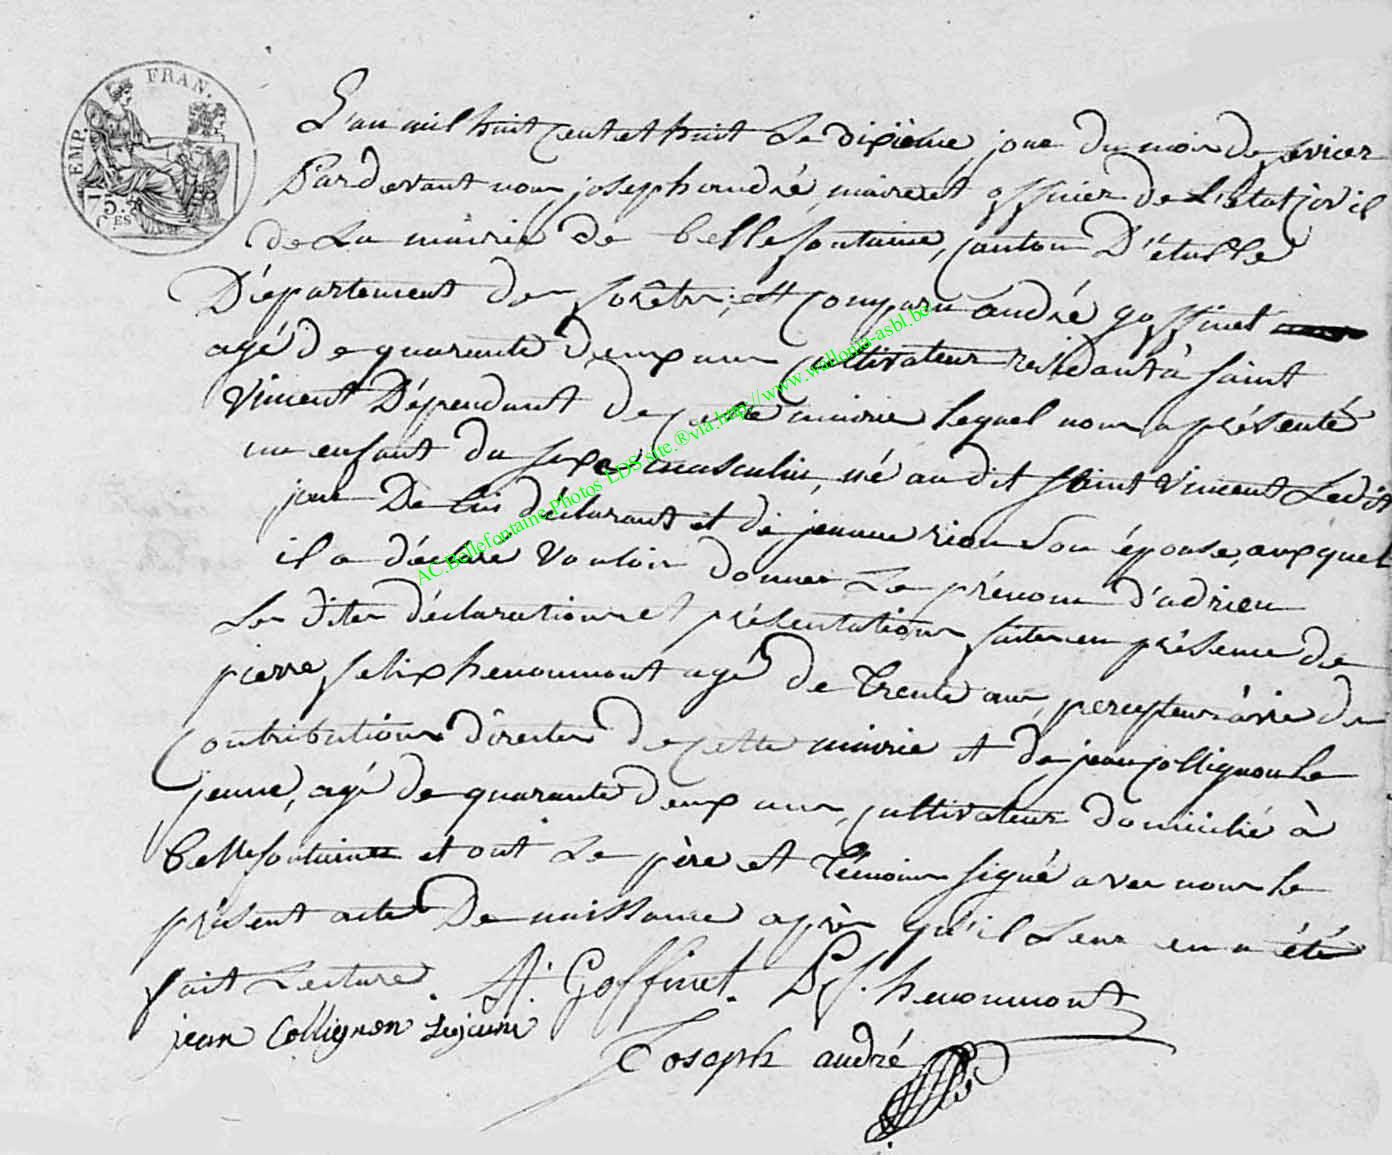 EMP. FRAN.
75
CES
L'an mil huit cent et huit le dixième jour du mois de fevrier
Pardevant nous joseph andré, maire et officier de l'état civil
de la mairie de bellefontaine, canton D'étalle
Département des forêts, est comparu andré goffinet
agé de quarente deux ans cultivateur residant à saint
Vincent Dépendant de cette mairie lequel nous a présenté
un enfant du sexe masculin, né au dit saint Vincent le dit
jour De lui déclarant et de jeanne rion son épouse, auxquel
il a déclaré vouloir donner le prénom d'adrien
les dites déclaration et présentation faites en présence de
pierre felix henoumont agé de trente ans, percepteur à vie des
contributions directes de cette mairie et de jean collignon le
jeune, agé de quarante deux ans, cultivateur domicilié à
bellefontaine et ont le père et témoins signé avec nous le
présent acte De naissance après qu'il leur en a été
fait lecture. A. Goffinet. P. f. henoumont
jean Collignon Lejeune
Joseph andré
AC.Bellefontaine.Photos EDS site.®via.http://www.wallonia-asbl.be/